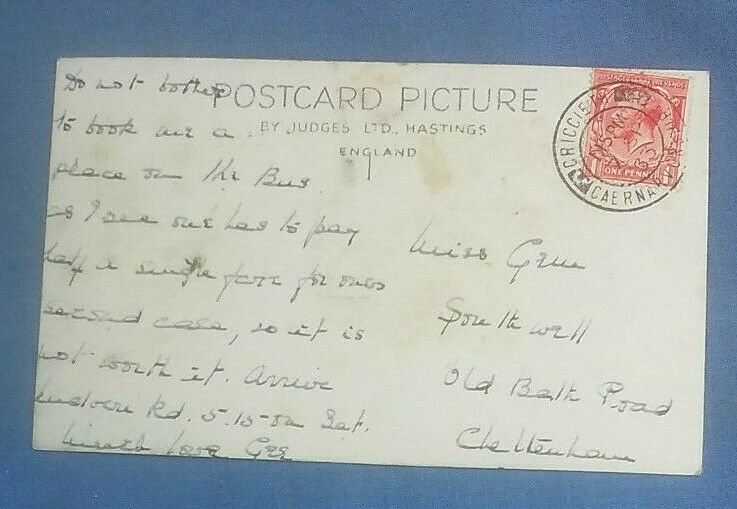 Do not bother
to book me a
place on the Bus.
as I see one has to pay
half a single fare for ones
second case, so it is
not worth it. Arrive
Rd. 5.15 on Sat.
Much love
POSTCARD PICTURE
BY JUDGES LTD., HASTINGS
ENGLAND
Miss
Southwell
Old Bath Road
Cheltenham
POSTAGE REVENUE
ONE PENNY
CRICCIETH
CAERNARVON
PM